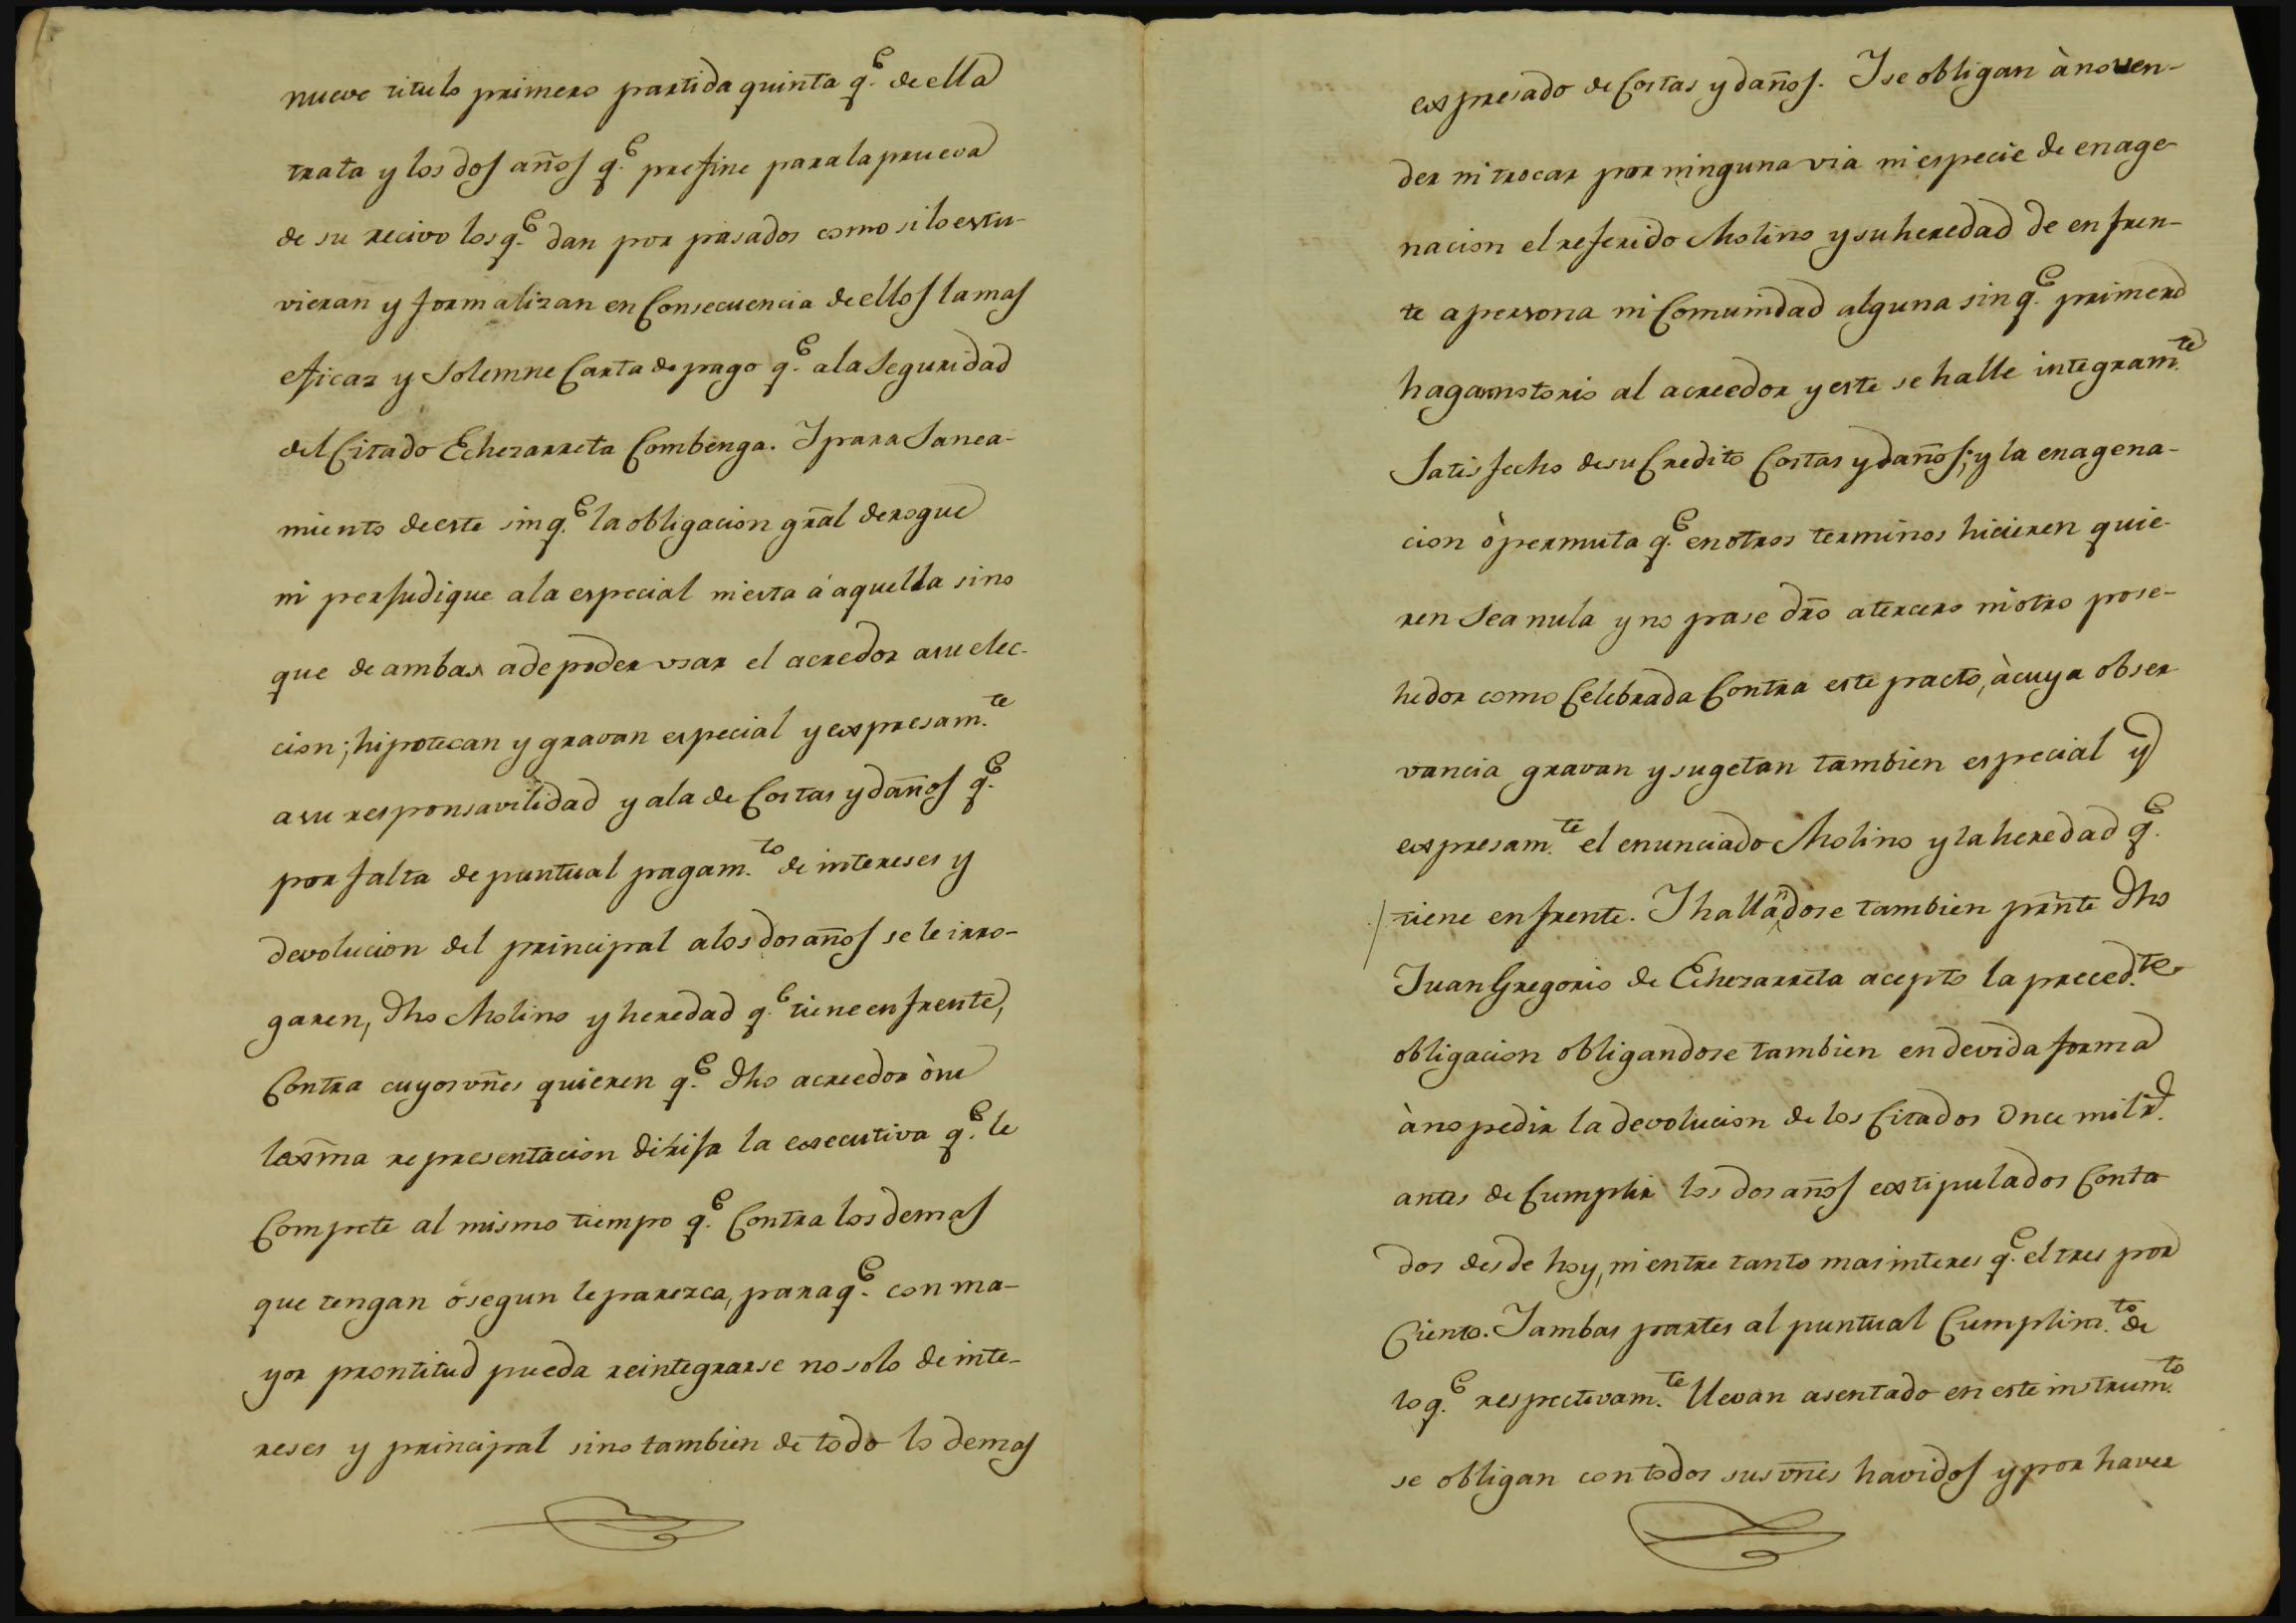 nueve titulo primero partida quinta q.e de ella
trata y los dos años q.e prefine para la prueva
de su recivo los q.e dan por pasados como si lo estu-
vieran y formalizan en Consecuencia de ellos la mas
eficaz y Solemne Carta de pago q.e a la Seguridad
del Citado Echezarreta Combenga. Y para Sanea-
miento de este sin q.e la obligacion grãl derogue
ni perjudique a la especial ni esta á aquella sino
que de ambas a de poder usar el acredor a su elec-
cion; hipotecan y gravan especial y expresam.te
a su responsavilidad y a la de Costas y daños q.e
por falta de puntual pagam.to de intereses y
devolucion del principal a los dos años se le irro-
garen, dho Molino y heredad q.e tiene en frente,
Contra cuyos vñes quieren q.e dho acreedor ò su
lexma representacion dirija la executiva q.e le
Compete al mismo tiempo q.e Contra los demas
que tengan ó segun le parezca, para q.e con ma-
yor prontitud pueda reintegrarse no solo de inte-
reses y principal sino tambien de todo lo demas
expresado de Costas y daños. Y se obligan à no ven-
der ni trocar por ninguna via ni especie de enage-
nacion el referido Molino y su heredad de en fren-
te a persona ni Comunidad alguna sin q.e primero
hagan notorio al acreedor y este se halle integram.te
Satisfecho de su Credito Costas y daños; y la enagena-
cion ò permuta q.e en otros terminos hicieren quie-
ren Sea nula y no pase dr̃o a tercero ni otro pose-
hedor como Celebrada Contra este pacto, à cuya obser
vancia gravan y sugetan tambien especial y
expresam.te el enunciado Molino y la heredad q.e
tiene en frente. Y hallandose tambien prñte dho
Juan Gregorio de Echezarreta acepto la preced.te
obligacion obligandose tambien en devida forma
à no pedir la devolucion de los Citados Once mil r.s
antes de Cumplir los dos años extipulados Conta
dos desde hoy, ni entre tanto mas interes q.e el tres por
Ciento. Y ambas partes al puntual Cumplim.to de
lo q.e respectivam.te llevan asentado en este instrum.to
se obligan con todos sus vñes havidos y por haver